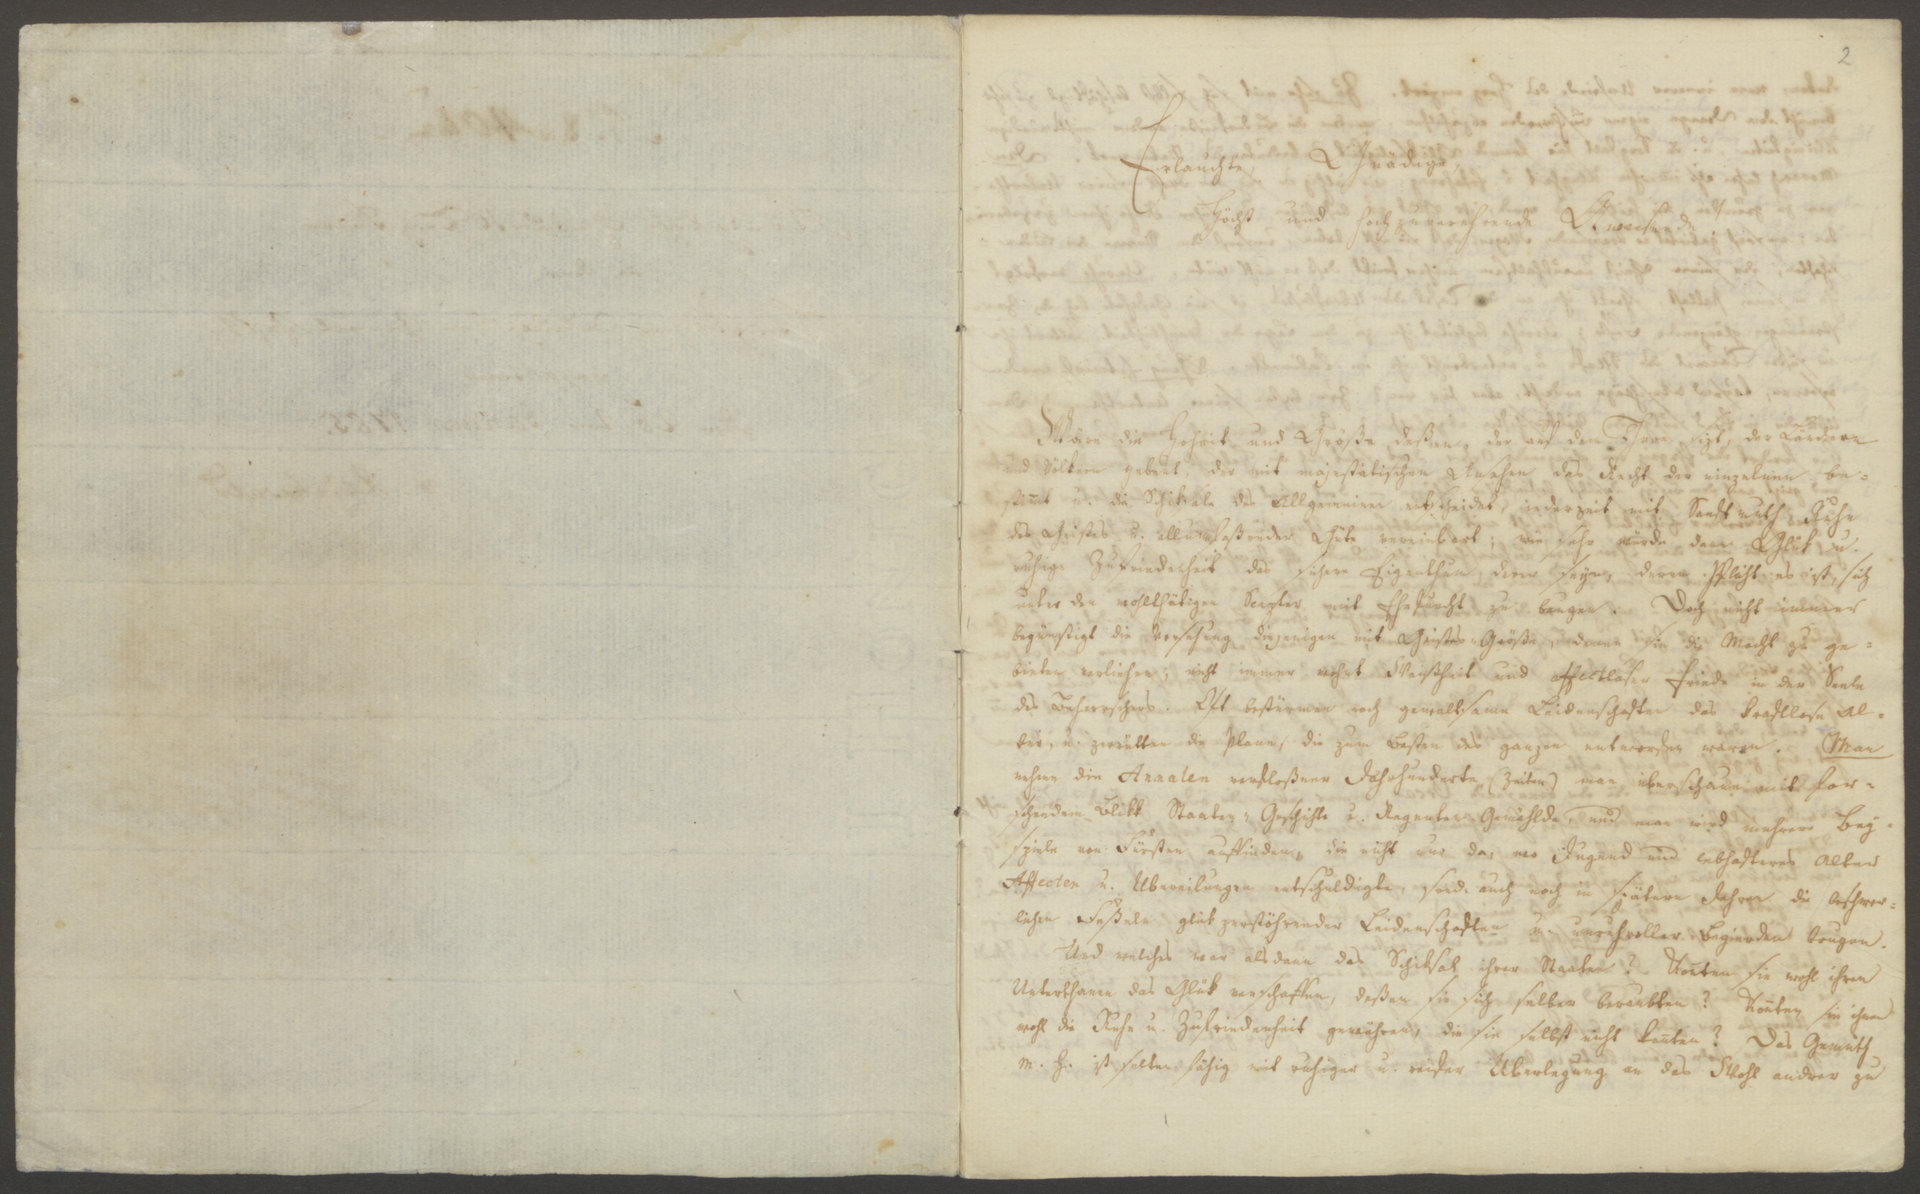 2
Erlauchte, Gnädige,
Höchst und hochzuverehrende Anwesende
Wäre die Hoheit und Größe deßen, der auf dem Thron sizt, der Ländern
und Völkern gebeut, der mit majestätischen Ansehen das Recht der einzelnen be-
stimt u. die Schiksale des Allgemeinen entscheidet, iederzeit mit Sanftmuth, Ruhe
des Geistes u. allumfaßender Güte vereinbart; wie sehr würde dann Glük u.
ruhige Zufriedenheit das sichere Eigenthum derer seyn, deren Pflicht es ist, sich
unter den wohlthätigen Scepter mit Ehrfurcht zu beugen. Doch nicht immer
begünstigt die Vorsehung diejenigen mit Geistes-Größe, denen sie die Macht zu ge-
bieten verliehen; nicht immer wohnt Weißheit und affectloser Friede in der Seele
des Beherrschers. Oft bestürmen noch gewaltsame Leidenschaften das kraftlose Al-
ter, u. zerrütten die Plane, die zum Besten des ganzen entworfen waren. Man
nehme die Annalen verfloßner Jahrhunderte (Zeiten) man überschaue mit for-
schendem Blikk Staaten-Geschichte u. Regenten Gemählde, und man wird mehrere Bey-
spiele von Fürsten auffinden, die nicht nur da, wo Jugend und lebhafteres Alter
Affecten u. Übereilungen entschuldigte, sond. auch noch in spätern Jahren die beschwer-
lichen Feßeln glükzerstöhrender Leidenschaften u. unruhvoller Begierden trugen.
Und welches war alsdann das Schiksal ihrer Staaten? Konten sie wohl ihren
Unterthanen das Glük verschaffen, deßen sie sich selber beraubten? Konten sie ihnen
wohl die Ruhe u. Zufriedenheit gewähren, die sie selbst nicht kanten? Das Gemüth
m. H. ist selten fähig mit ruhiger u. reifer Überlegung an das Wohl andrer zu